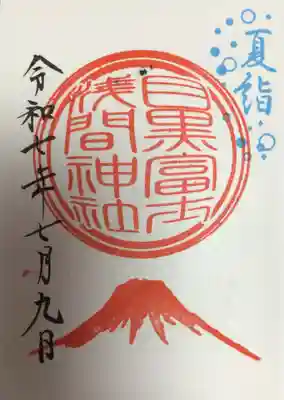 夏詣
目黒富士
浅間神社
令和七年七月九日